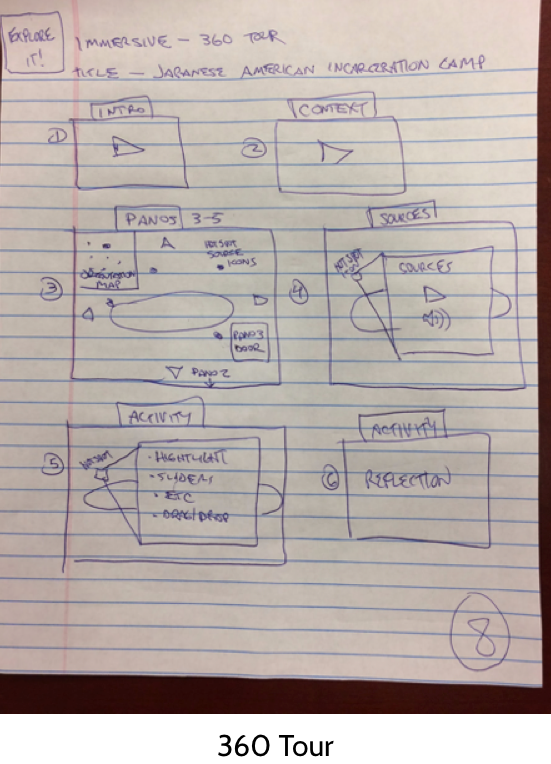 EXPLORE
IT!
IMMERSIVE – 360 TOUR
TITLE – JAPANESE AMERICAN INCARCERATION CAMP
INTRO
1
CONTEXT
2
PANOS 3-5
3
ORIENTATION
MAP
HOT SPOT
SOURCE
ICONS
PANO 3
DOOR
PANO 2
SOURCES
4
HOT SPOT
SOURCES
ACTIVITY
5
HOTSPOT
• HIGHLIGHT
• SLIDERS
• ETC
• DRAG/DROP
ACTIVITY
6
REFLECTION
8
360 Tour